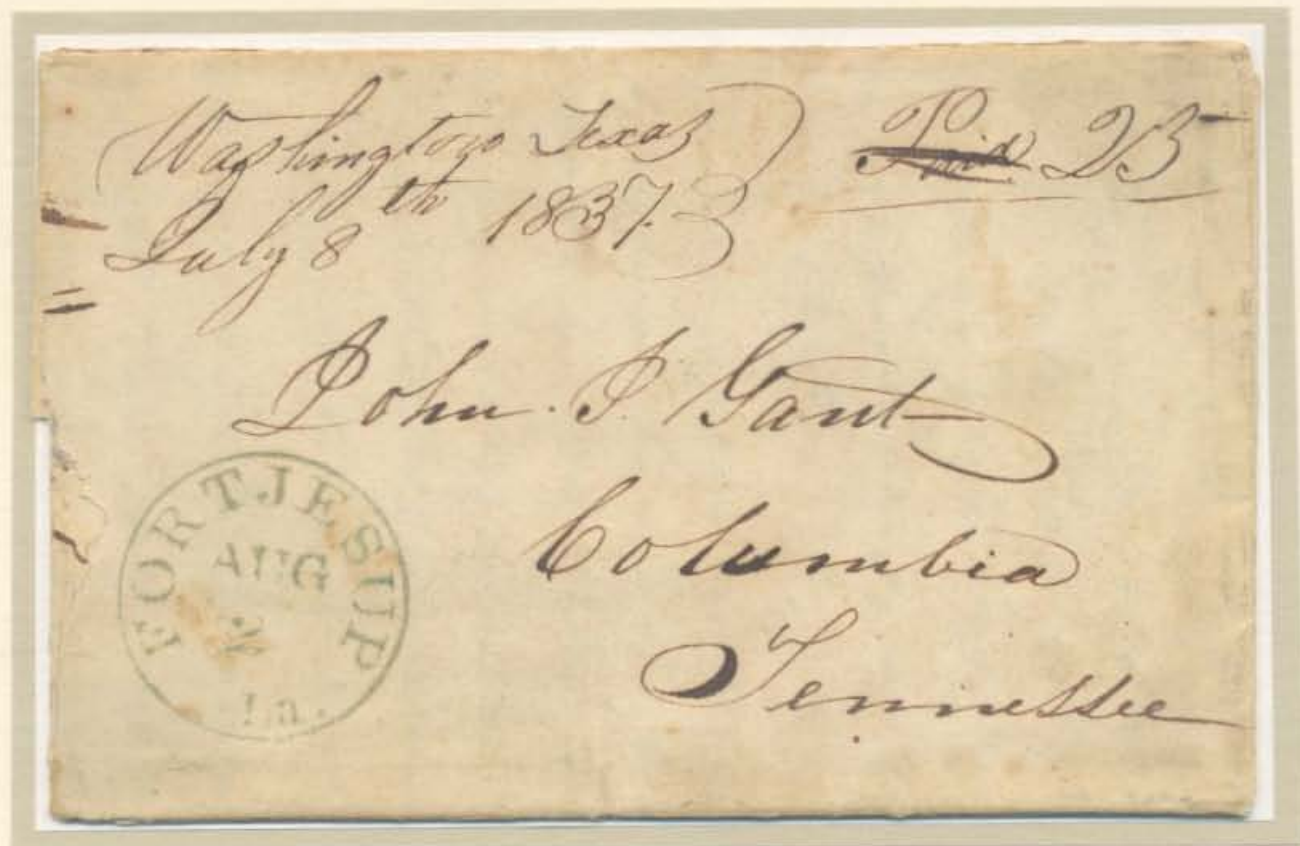 Washington Texas
July 8th 1837.
Paid 25
John. J. Gant
Columbia
Tennessee
FORT JESUP
AUG
2
La.